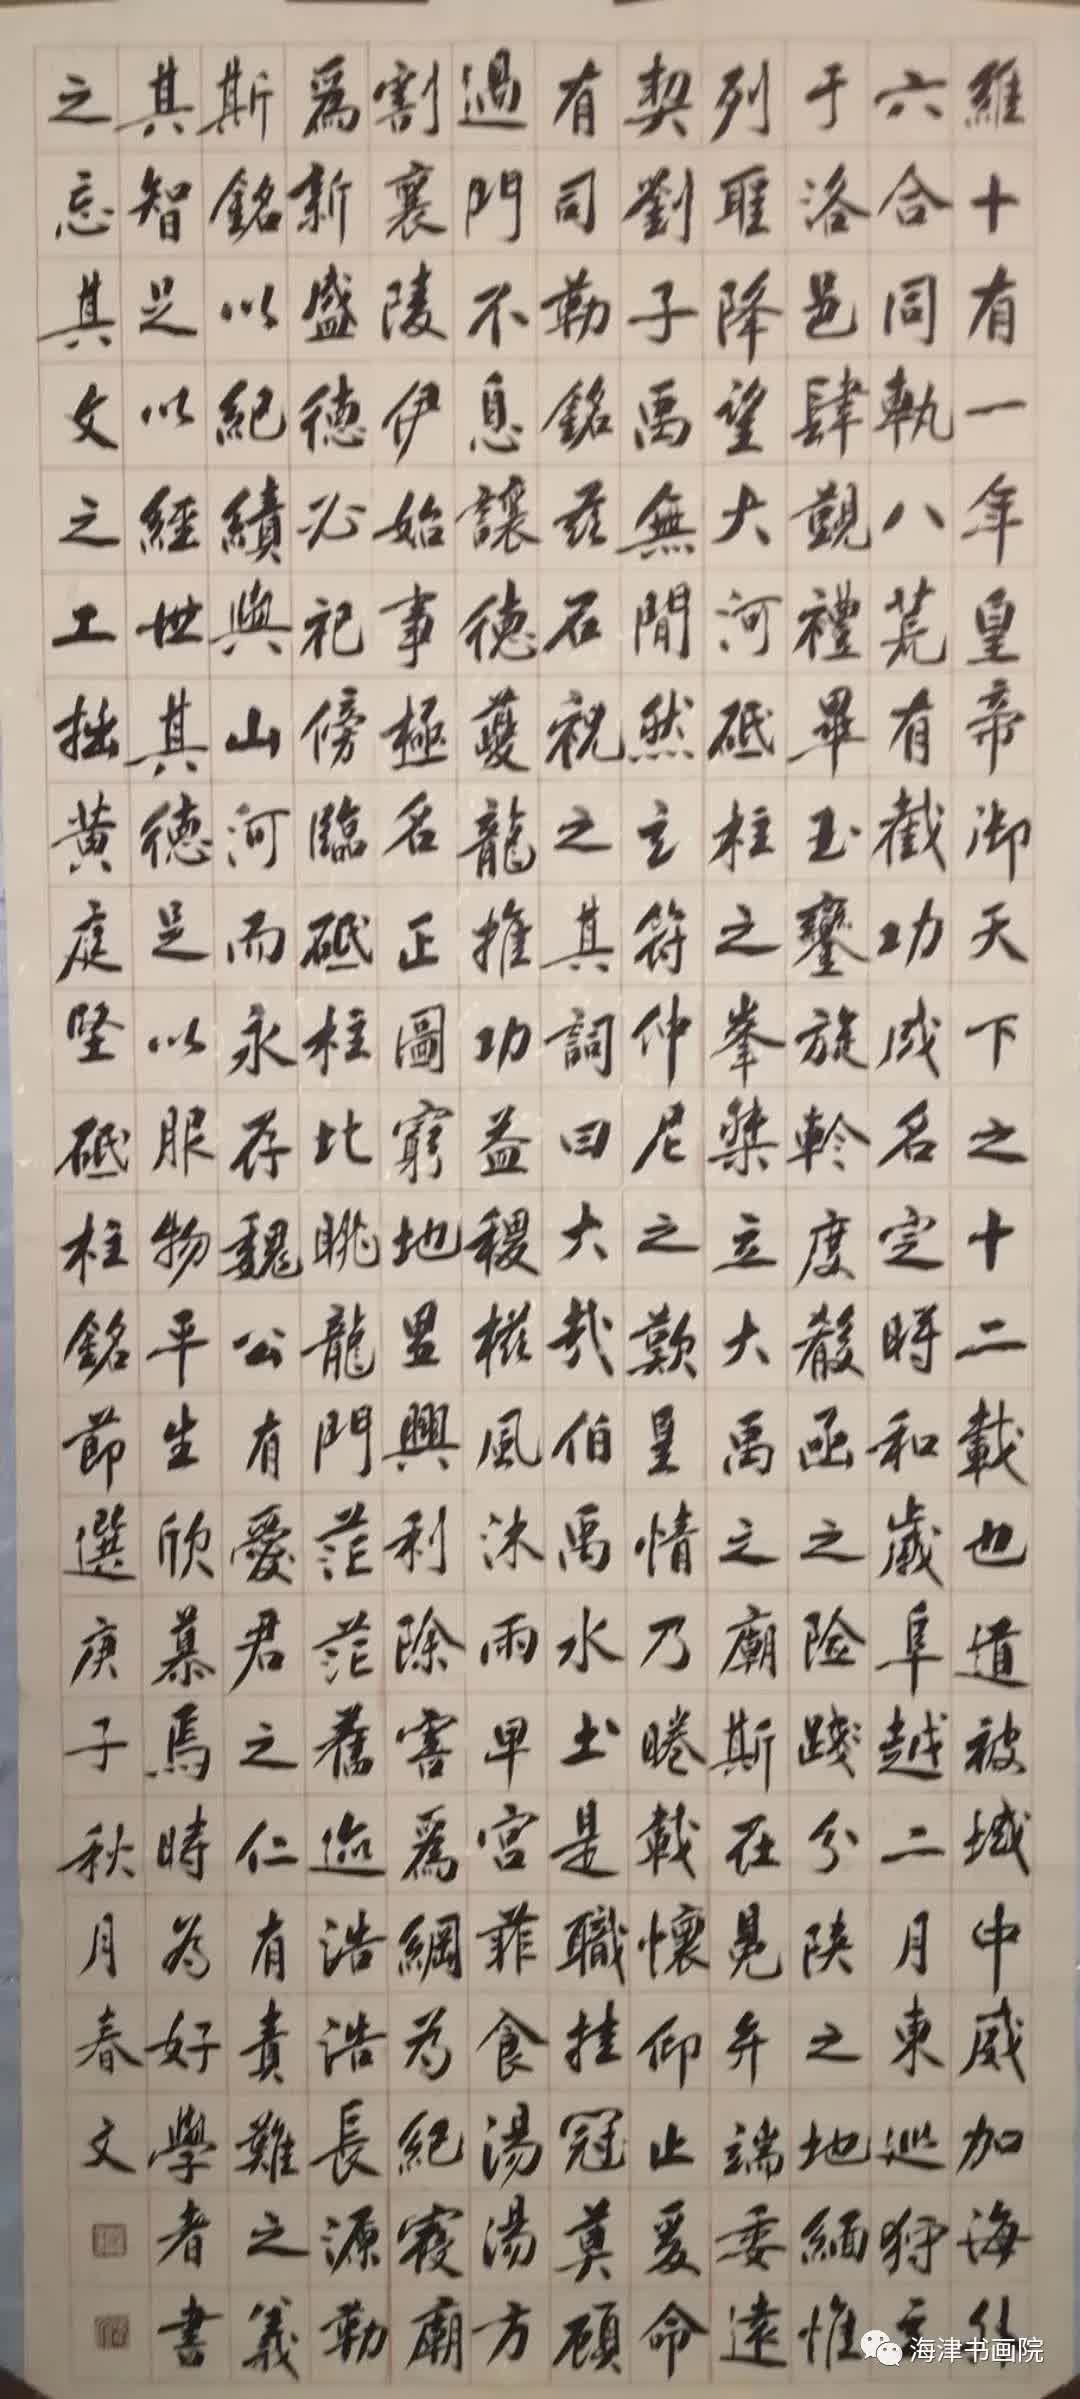 維十有一年皇帝御天下之十二載也道被域中威加海外
六合同軌八荒有截功成名定時和歲阜越二月東巡狩至
于洛邑肆覲禮畢玉鑾旋軫度殽函之险踐分陝之地緬惟
列聖降望大河砥柱之峯桀立大禹之廟斯在晃弁端委遠
契劉子禹無間然玄符仲尼之歎皇情乃睠載懷仰止爰命
有司勒銘茲石祝之其詞曰大哉伯禹水土是職挂冠莫顧
過門不息讓德夔龍推功益稷櫛風沐雨卑宮菲食湯湯方
割襄陵伊始事極名正圖窮地里興利除害爲綱为紀寢廟
爲新盛德必祀傍臨砥柱北眺龍門茫茫舊迹浩浩長源勒
斯銘以紀績與山河而永存魏公有愛君之仁有責難之義
其智足以經世其德足以服物平生欣慕焉時为好學者書
之忘其文之工拙黄庭堅砥柱銘節選庚子秋月春文
海津书画院